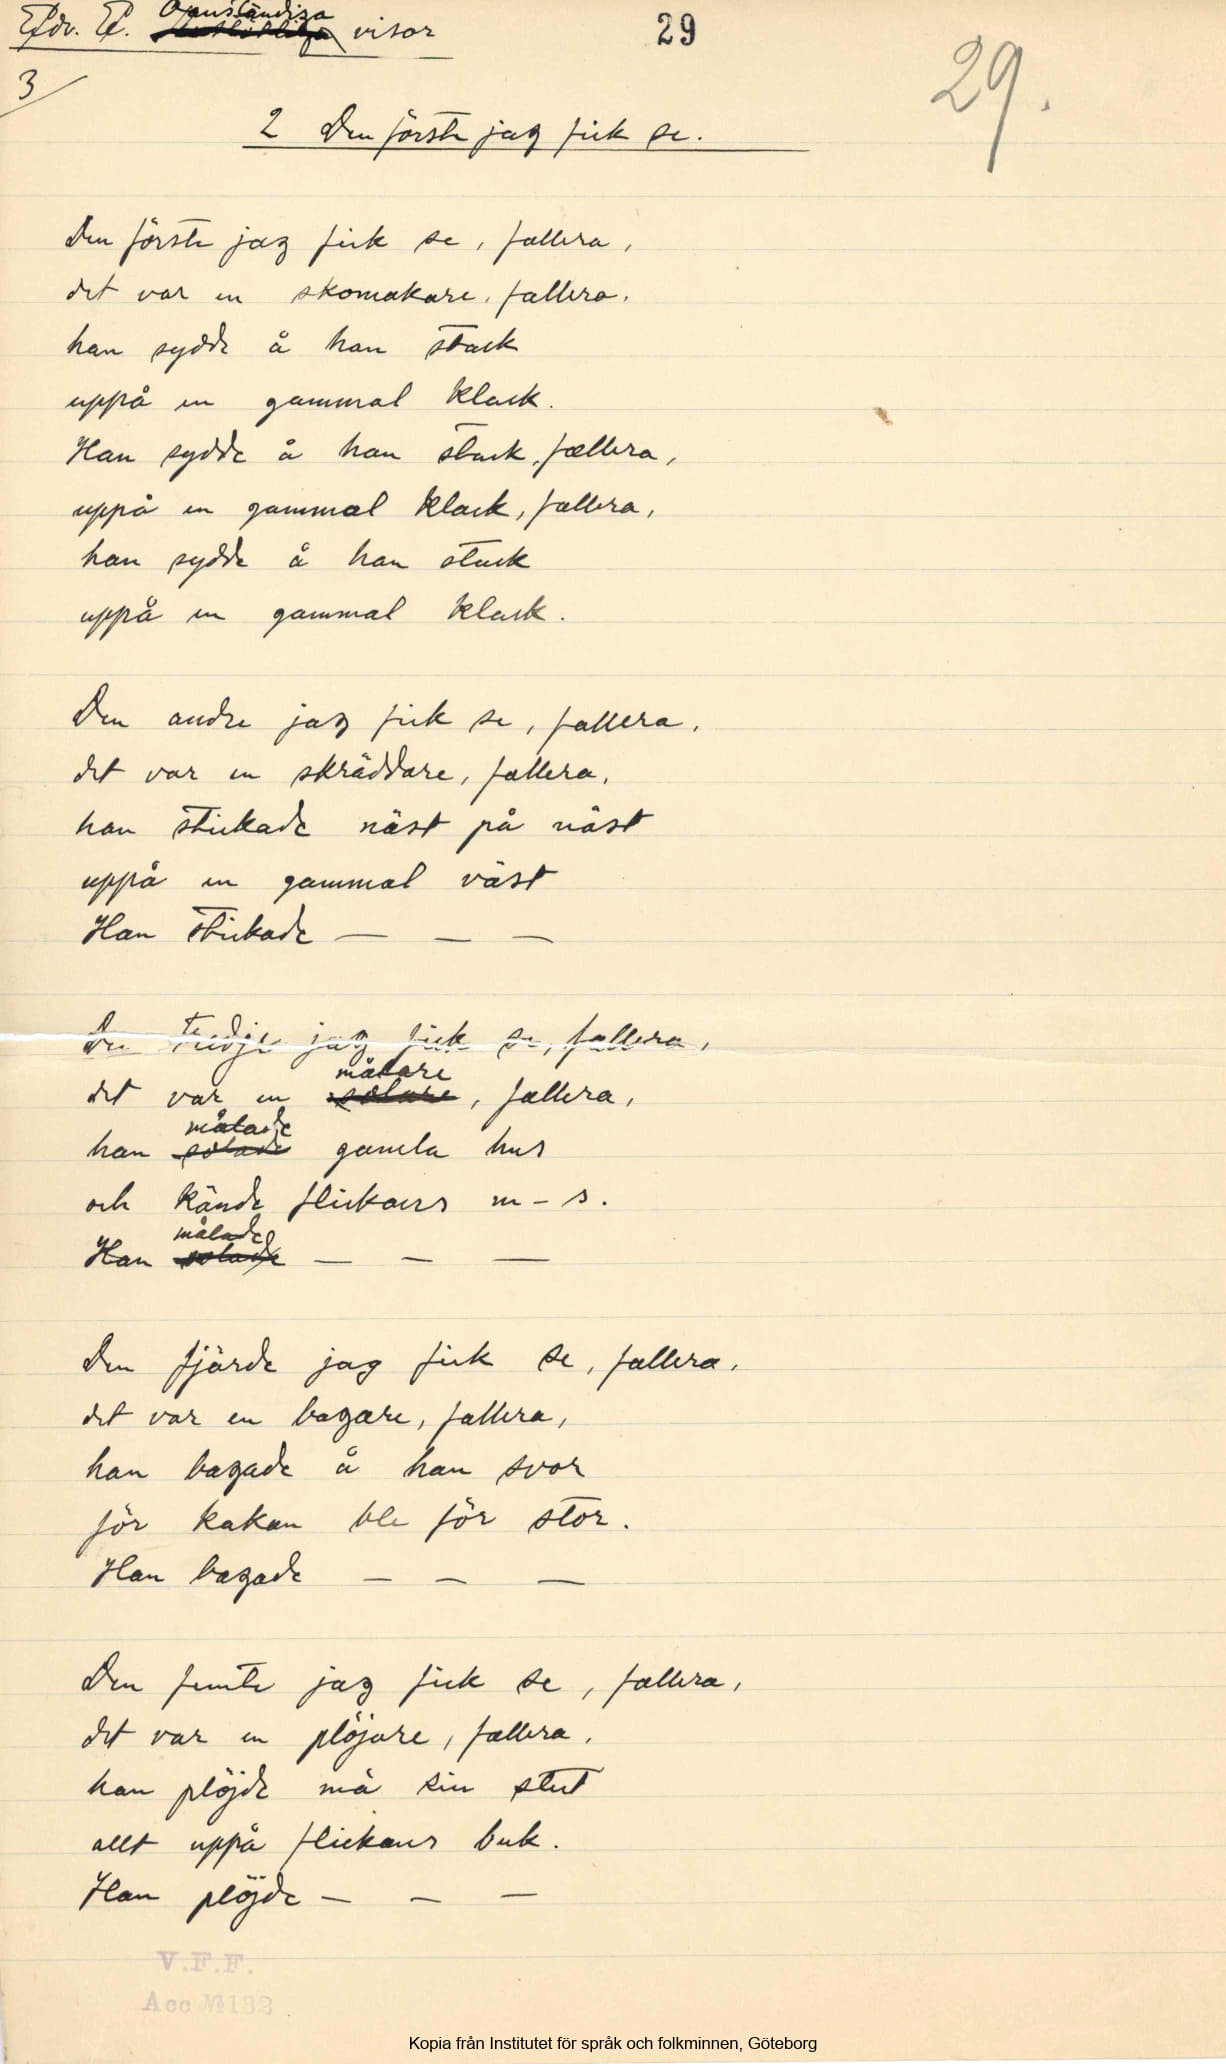 Edv. E. Oanständiga visor
29
29.
3
2 Den förste jag fick se.
Den förste jag fick se, fallera,
det var en skomakare, fallera,
han sydde å han stack
uppå en gammal klack.
Han sydde å han stack, fallera,
uppå en gammal klack, fallera,
han sydde å han stack
uppå en gammal klack.
Den andre jag fick se, fallera,
det var en skräddare, fallera,
han stickade näst på näst
uppå en gammal väst
Han stickade — — —
Den tredje jag fick se, fallera,
målare
det var en solare, fallera,
målade
han solade gamla hus
och kände flickans m-s.
målade
Han solade — — —
Den fjärde jag fick se, fallera,
det var en bagare, fallera,
han bagade å han svor
för kakan ble för stor.
Han bagade — — —
Den femte jag fick se, fallera,
det var en plöjare, fallera,
han plöjde må sin stut
allt uppå flickans buk.
Han plöjde — — —
V.F.F.
Acc №
Kopia från Institutet för språk och folkminnen, Göteborg